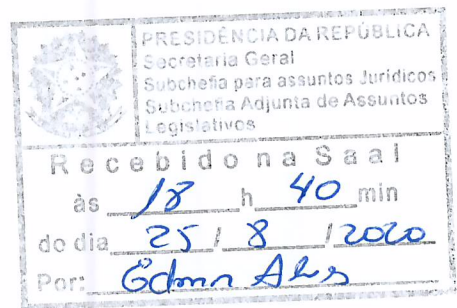 PRESIDÊNCIA DA REPÚBLICA
Secretaria Geral
Subchefia para assuntos Jurídicos
Subchefia Adjunta de Assuntos
Legislativos
Recebido na Saal
às 18 h 40 min
do dia 25 / 8 / 2020
Por: